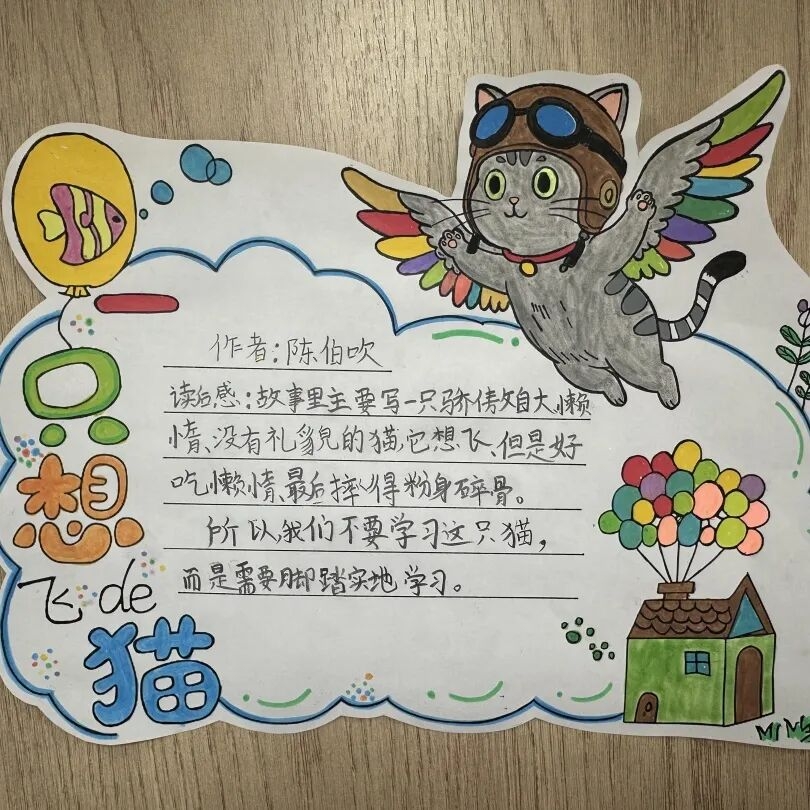 只
想
飞de
猫
作者:陈伯吹
读后感:故事里主要写一只骄傅自大、懒
惰、没有礼貌的猫,它想飞、但是好
吃懒惰、最后摔得粉身碎骨。
所以,我们不要学习这只猫,
而是需要脚踏实地学习。